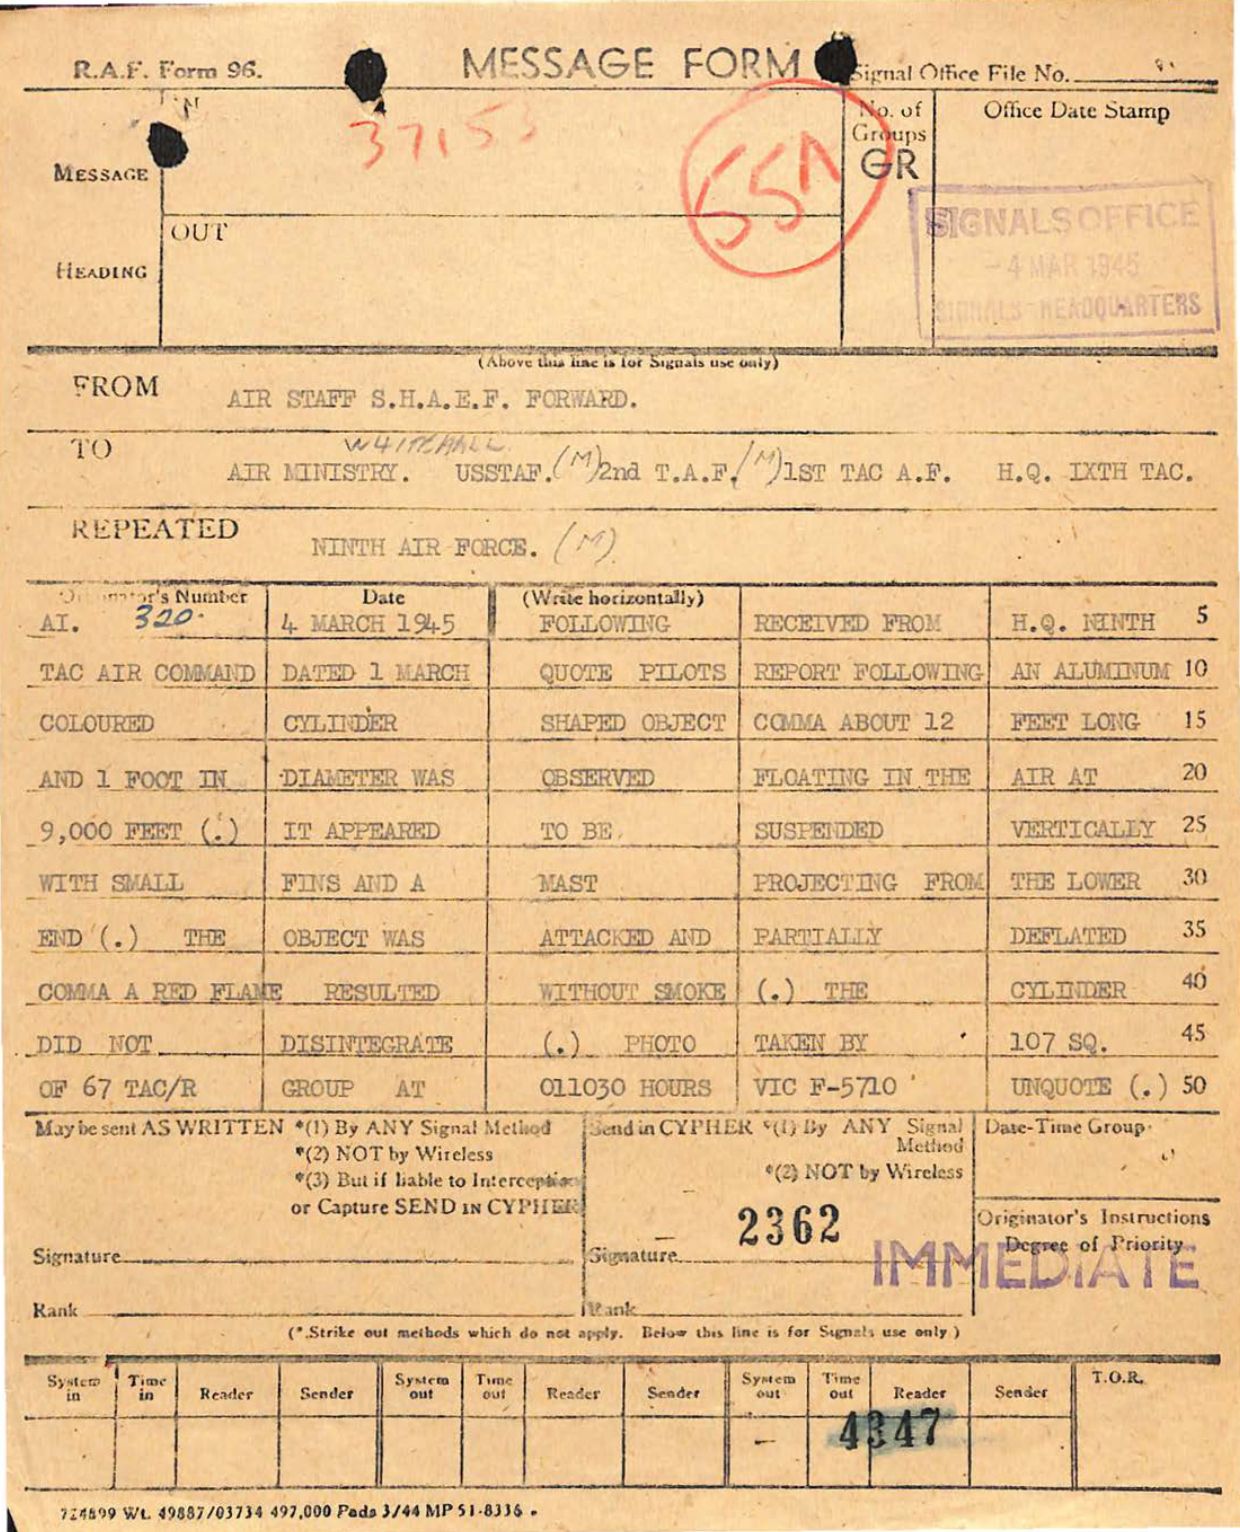 R.A.F. Form 96.
MESSAGE FORM
Signal Office File No.
37153
55A
No. of
Groups
GR
Office Date Stamp
MESSAGE
HEADING
IN
OUT
SIGNALS OFFICE
-4 MAR 1945
SIGNALS HEADQUARTERS
(Above this line is for Signals use only)
FROM AIR STAFF S.H.A.E.F. FORWARD.
WHITEHALL
TO AIR MINISTRY. USSTAF. (M) 2nd T.A.F. (M) 1ST TAC A.F. H.Q. IXTH TAC.
REPEATED NINTH AIR FORCE. (M)
Originator's Number Date (Write horizontally)
AI. 320. 4 MARCH 1945 FOLLOWING RECEIVED FROM H.Q. NINTH 5
TAC AIR COMMAND DATED 1 MARCH QUOTE PILOTS REPORT FOLLOWING AN ALUMINUM 10
COLOURED CYLINDER SHAPED OBJECT COMMA ABOUT 12 FEET LONG 15
AND 1 FOOT IN DIAMETER WAS OBSERVED FLOATING IN THE AIR AT 20
9,000 FEET (.) IT APPEARED TO BE SUSPENDED VERTICALLY 25
WITH SMALL FINS AND A MAST PROJECTING FROM THE LOWER 30
END (.) THE OBJECT WAS ATTACKED AND PARTIALLY DEFLATED 35
COMMA A RED FLAME RESULTED WITHOUT SMOKE (.) THE CYLINDER 40
DID NOT DISINTEGRATE (.) PHOTO TAKEN BY 107 SQ. 45
OF 67 TAC/R GROUP AT 011030 HOURS VIC F-5710 UNQUOTE (.) 50
May be sent AS WRITTEN *(1) By ANY Signal Method
*(2) NOT by Wireless
*(3) But if liable to Interception
or Capture SEND IN CYPHER
Signature
Rank
Send in CYPHER *(1) By ANY Signal
Method
*(2) NOT by Wireless
2362
Signature
Rank
Date-Time Group
Originator's Instructions
Degree of Priority
IMMEDIATE
(*.Strike out methods which do not apply. Below this line is for Signals use only)
System in Time in Reader Sender System out Time out Reader Sender System out Time out Reader Sender T.O.R.
4347
724899 Wt. 49887/03734 497,000 Pads 3/44 MP 51-8336